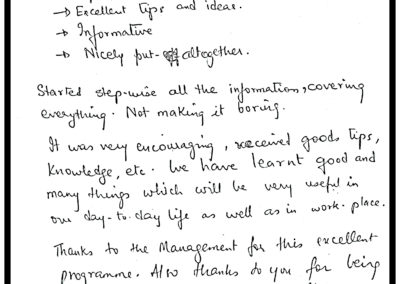 → Excellent tips and ideas.
→ Informative
→ Nicely put- altogether.
Started step-wise all the information, covering
everything. Not making it boring.
It was very encouraging, received good tips,
knowledge, etc. We have learnt good and
many things which will be very useful in
our day-to-day life as well as in work-place.
Thanks to the Management for this excellent
programme. Also thanks to you for being